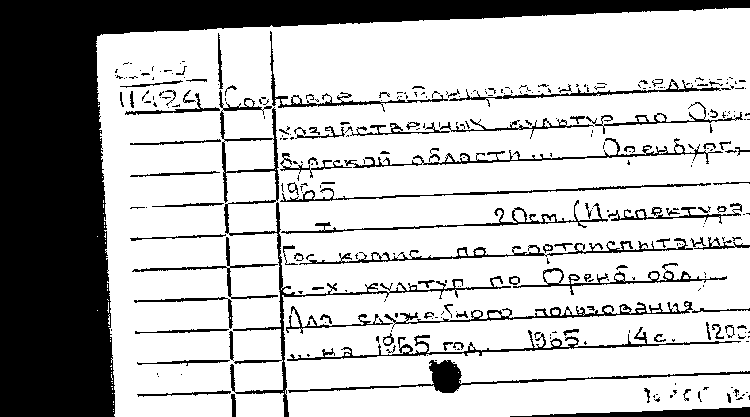 11424 Сортовое районирование сельско-
хозяйственных культур по Орен-
бургской области... Оренбург,
1965.
I. 20см. (Инспектура
Гос. комис. по сортоиспытанию
с.-х. культур по Оренб. обл.)
Для служебного пользования.
... на 1965 год. 1965. 14с. 1200